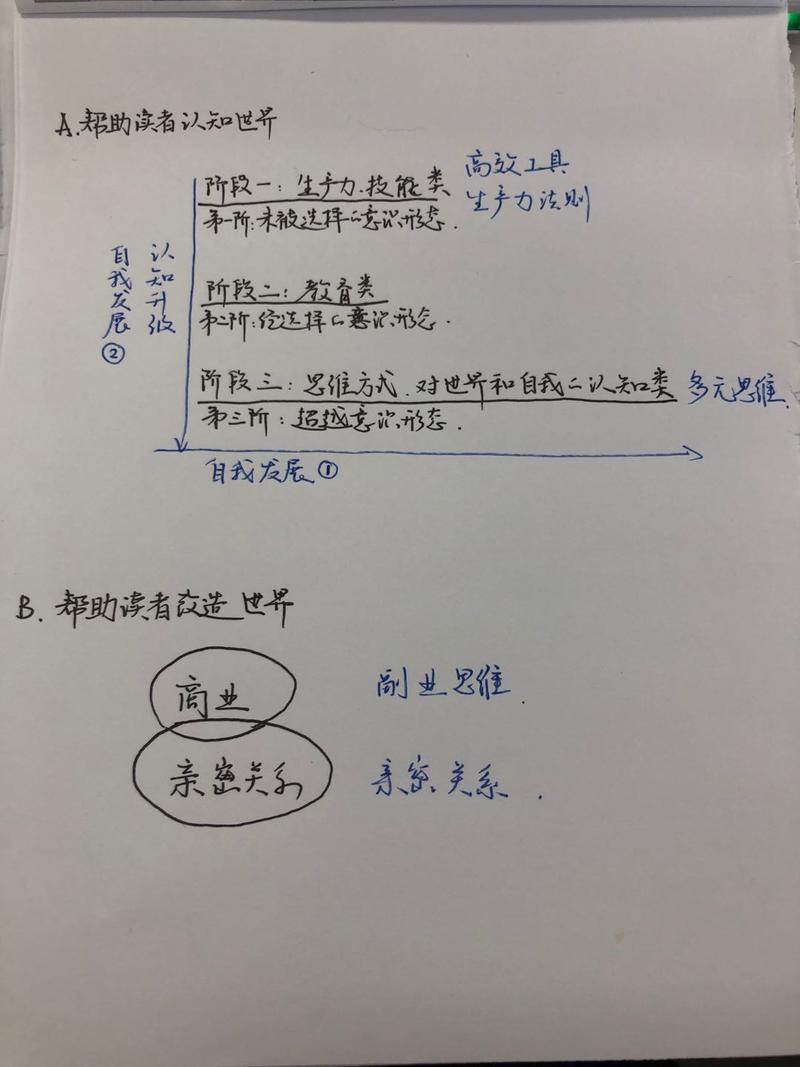 A.帮助读者认知世界
阶段一：生产力.技能类
高效工具
第一阶：未被选择的意识形态.
生产力法则
认知升级
自我发展②
阶段二：教育类
第二阶：经选择的意识形态.
阶段三：思维方式.对世界和自我的认知类
多元思维.
第三阶：超越意识形态.
自我发展①
B.帮助读者改造世界
商业
副业思维.
亲密关系
亲密关系.